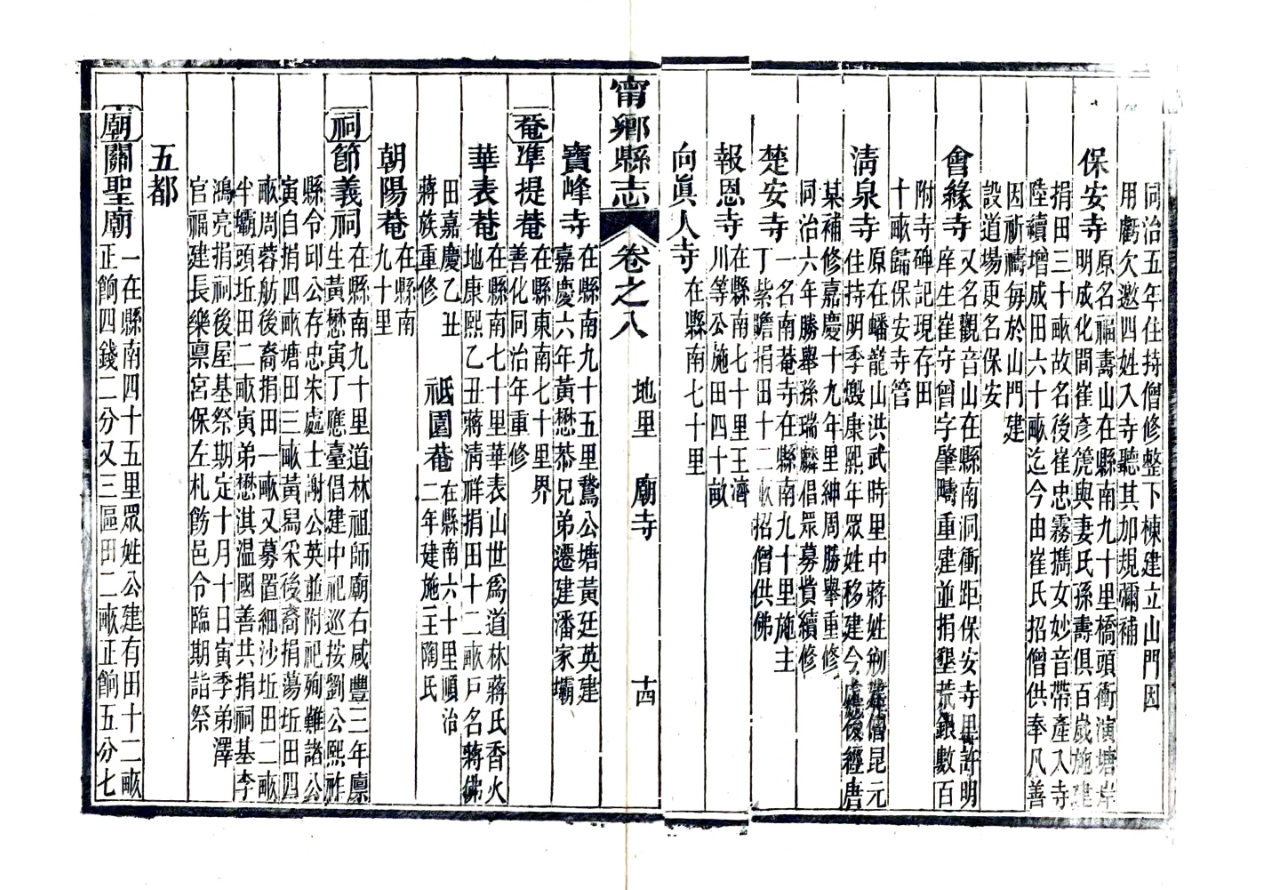 同治五年住持僧修整下棟建立山門因
用虧欠邀四姓入寺聽其加規彌補
保安寺原名福壽山在縣南九十里橋頭衝演塘岸
明成化間崔彥篪與妻氏孫壽俱百歲施建
捐田三十畝故名後崔忠霧攜女妙音帶產入寺
陸續增成田六十畝迄今由崔氏招僧供奉凡善
因祈禱每於山門建
設道場更名保安
會緣寺又名觀音山在縣南洞衝距保安寺里許明
庠生崔守曾字肇疇重建並捐墾荒銀數百
附寺碑記現存田
十畝歸保安寺管
清泉寺原在蟠龍山洪武時里中蔣姓剏僧昆元
住持明季燬康熙年眾姓移建今處後經唐
某補修嘉慶十九年里紳周勝舉重修
同治六年勝舉孫瑞麟倡眾募貲續修
楚安寺一名南菴寺在縣南九十里施主
丁紫瞻捐田十二畝招僧供佛
報恩寺在縣南七十里王濟
川等公施田四十畝
向眞人寺在縣南七十里
甯鄉縣志 卷之八 地里 廟寺 十四
寶峰寺在縣南九十五里鶩公塘黃廷英建
嘉慶六年黃懋恭兄弟遷建潘家壩
菴準提菴在縣東南七十里界
善化同治年重修
華表菴在縣南七十里華表山世爲道林蔣氏香火
地康熙乙丑蔣清祥捐田十二畝戶名蔣佛
田嘉慶乙丑
蔣族重修
祗園菴在縣南六十里順治
二年建施主陶氏
朝陽菴在縣南
九十里
祠節義祠在縣南九十里道林祖師廟右咸豐三年廩
生黃懋寅丁應臺倡建中祀巡按劉公熙祚
縣令邱公存忠朱處士謝公英並附祀殉難諸公
寅自捐四畝塘田三畝黃舄采後裔捐蕩坵田四
畝周蓉舫後裔捐田一畝又募置細沙坵田二畝
半壩頭坵田二畝寅弟懋淇温國善共捐祠基李
鴻亮捐祠後屋基祭期定十月十日寅季弟澤
官福建長樂稟宮保左札飭邑令臨期詣祭
五都
廟關聖廟一在縣南四十五里眾姓公建有田十二畝
正餉四錢二分又三區田二畝正餉五分七